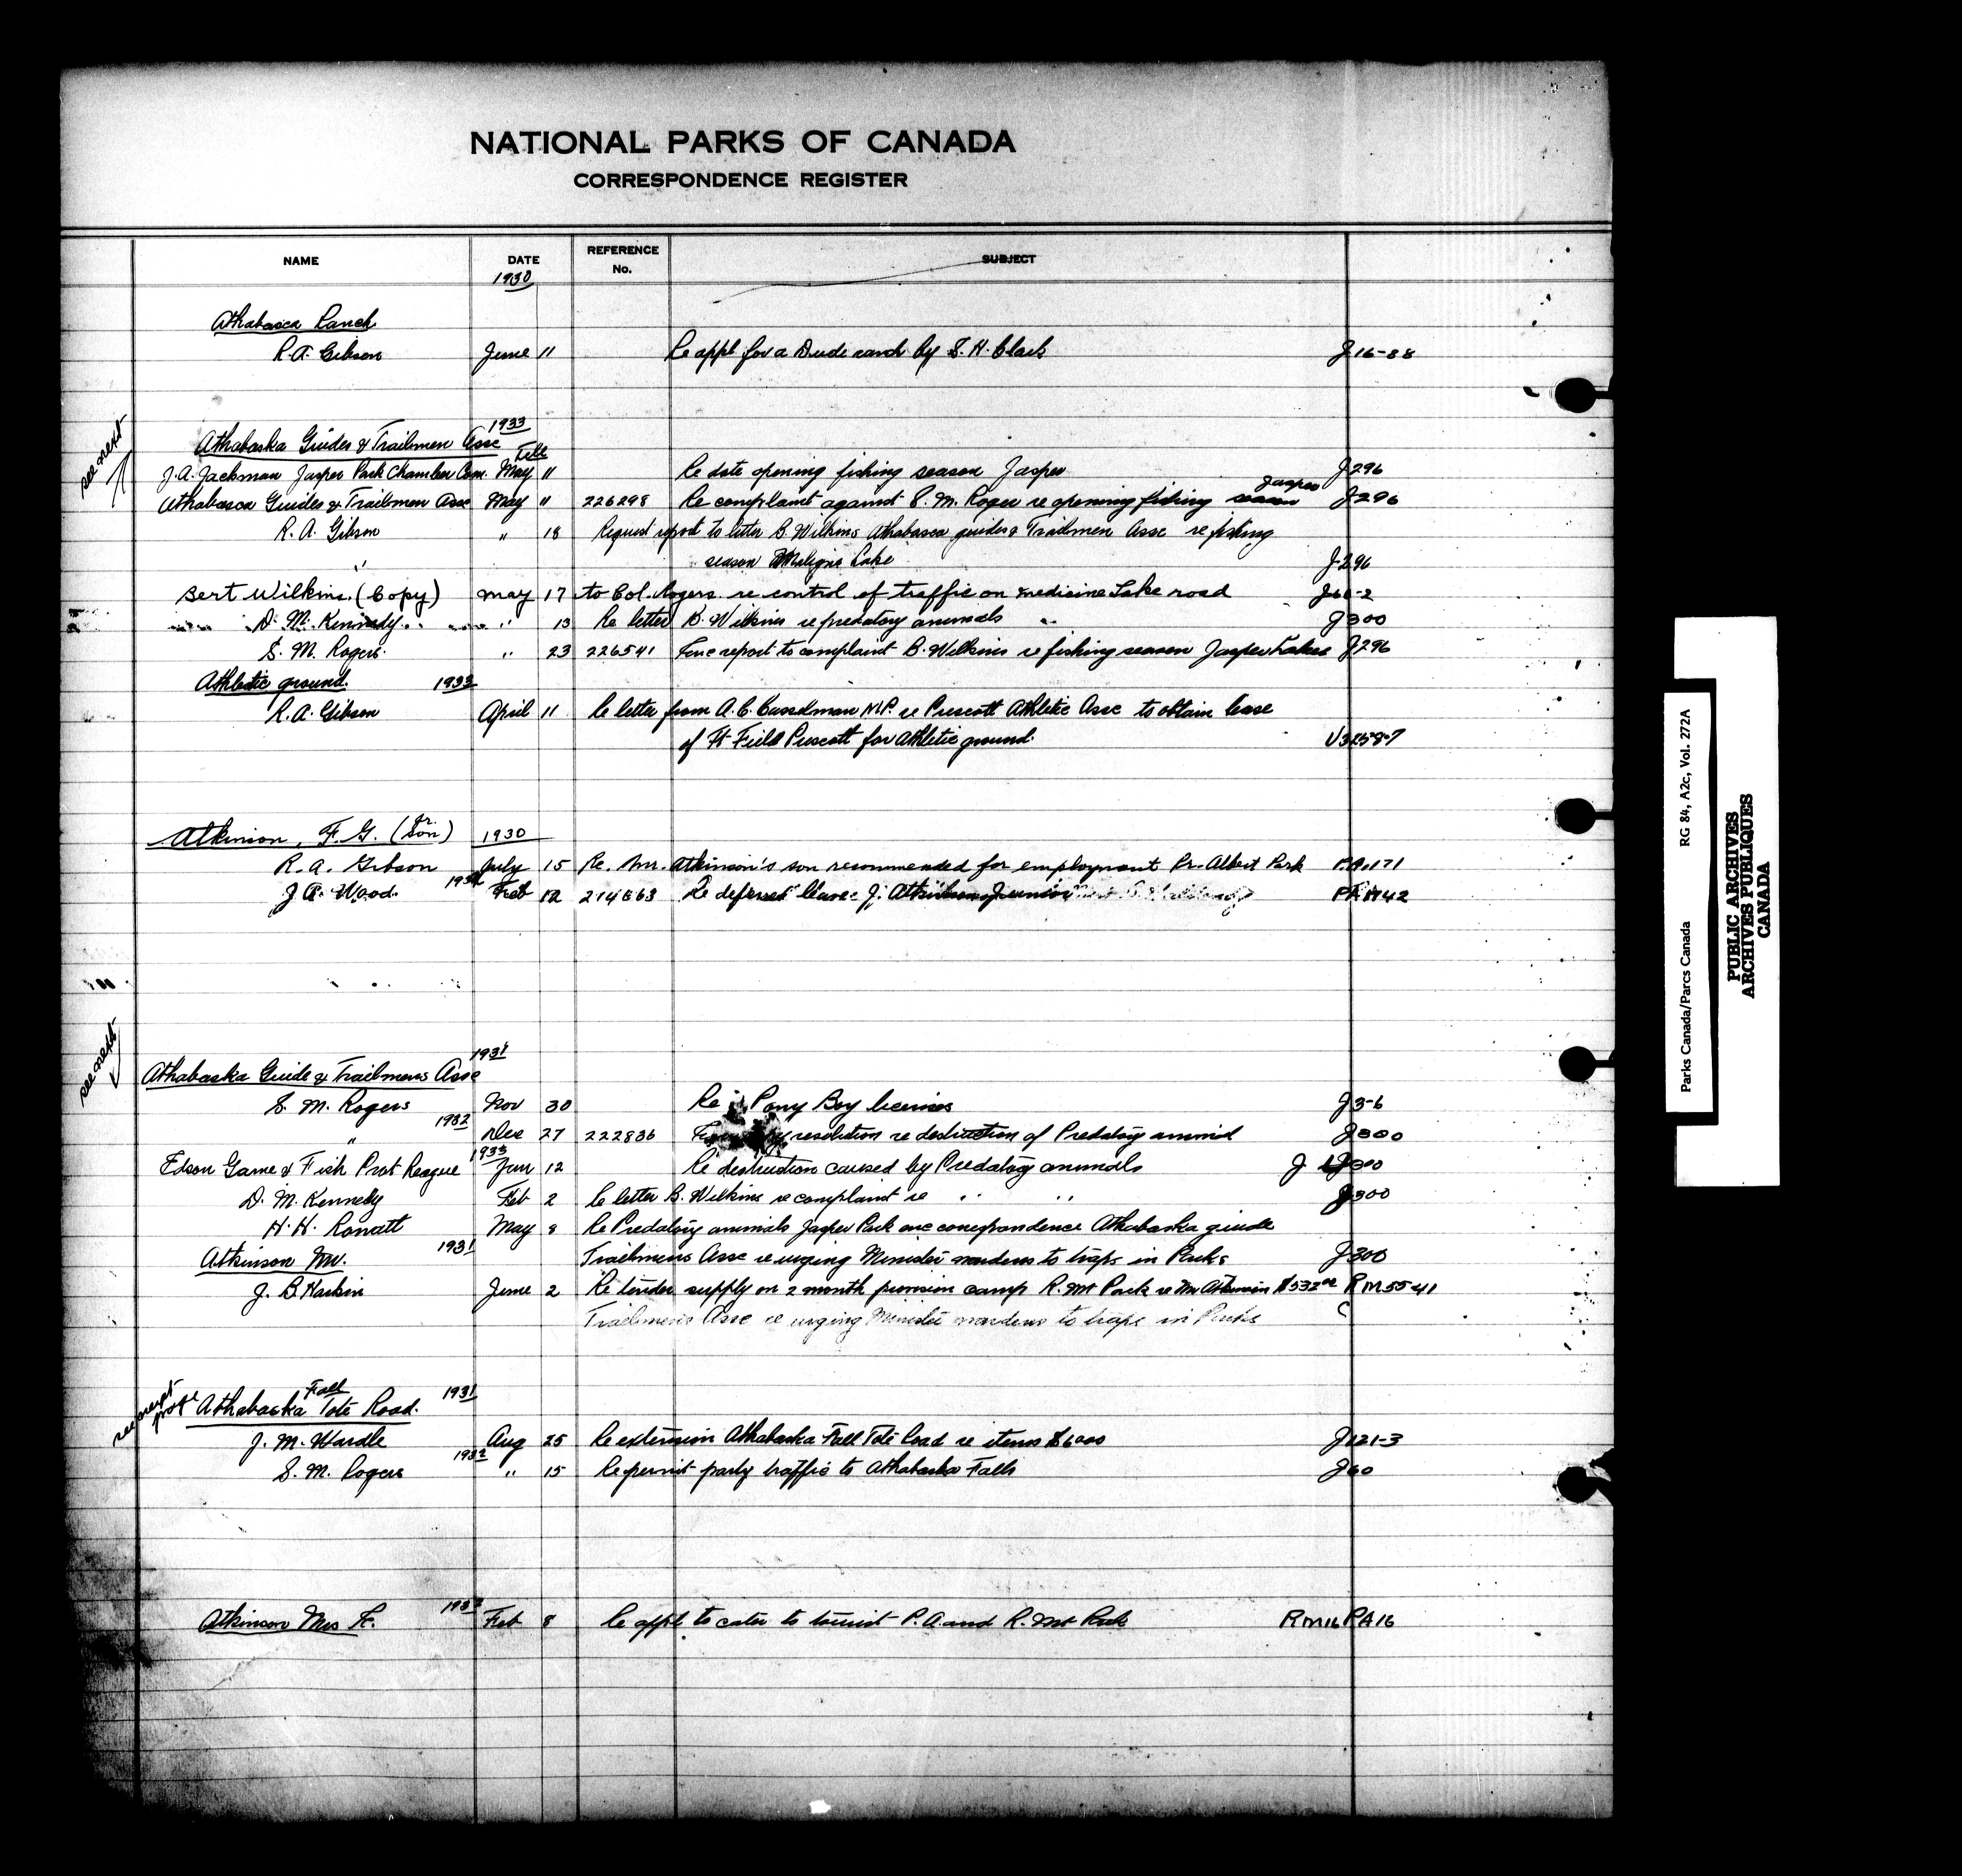 NATIONAL PARKS OF CANADA
CORRESPONDENCE REGISTER
NAME DATE REFERENCE No. SUBJECT
1930
Athabasca Ranch
R.A. Gibson June 11 Re appl for a Dude ranch by S. H. Clark J 16-88
see next
1933
Athabaska Guides & Trailmen Asse
Feb
J.A. Jackman Jasper Park Chamber Com. May 11 Re date opening fishing season Jasper J296
Athabasca Guides & Trailmen Asse May 11 226298 Re complaint against S. M. Roger re opening fishing season Jasper J296
R. A. Gibson " 18 Request report to letter B. Wilkins Athabasca guides & Trailmen Asse re fishing
season Maligne Lake J296
Bert Wilkins. (Copy) May 17 to Col. Rogers re control of traffic on Medicine Lake road J60-2
D. M. Kennedy " 13 Re letter B. Wilkins re predatory animals J300
S. M. Rogers. " 23 226541 report to complaint B. Wilkins re fishing season Jasper Lakes J296
Athletic ground. 1933
R.A. Gibson April 11 Re letter from A.C. Casselman M.P. re Prescott Athletic Asse to obtain lease
of Ft Field Prescott for athletic ground.
Atkinson, F. G. (Jr. son) 1930
R. A. Gibson July 15 Re. Mr. Atkinson's son recommended for employment Pr. Albert Park P.A.171
J. A. Wood. Feb 12 Re deferred leave J. Atkinson Junior PA H42
see next
1931
Athabaska Guide & Trailmens Asse
S. M. Rogers Nov 30 Re Pony Boy licenses J3-6
1932
" Dec 27 222836 resolution re destruction of Predatory animal J300
1933
Edson Game & Fish Prot League Jan 12 Re destruction caused by Predatory animals J300
D. M. Kennedy Feb 2 Re letter B. Wilkins re complaint re " " J300
H. H. May 8 Re Predatory animals Jasper Park enc correspondence Athabaska guide
Atkinson Mr. 1931 Trailmens Asse re urging Minister wardens to traps in Parks J300
J. B. Harkin June 2 Re tender supply on 2 month provision camp R. Mt Park re Mr Atkinson RM55-41
Trailmens Asse re urging Minister wardens to traps in Parks
see next page
Athabaska Fall Tote Road. 1931
J. M. Wardle Aug 25 Re extension Athabaska Fall Tote Road re items $6000 J121-3
1932
S. M. Rogers " 15 Re permit party traffic to Athabaska Falls J60
Atkinson Mrs F. Feb 8 Re appl to cater to tourist P. A. and R. Mt Park RM16 PA16
Parks Canada/Parcs Canada RG 84, A2c, Vol. 272A
PUBLIC ARCHIVES
ARCHIVES PUBLIQUES
CANADA